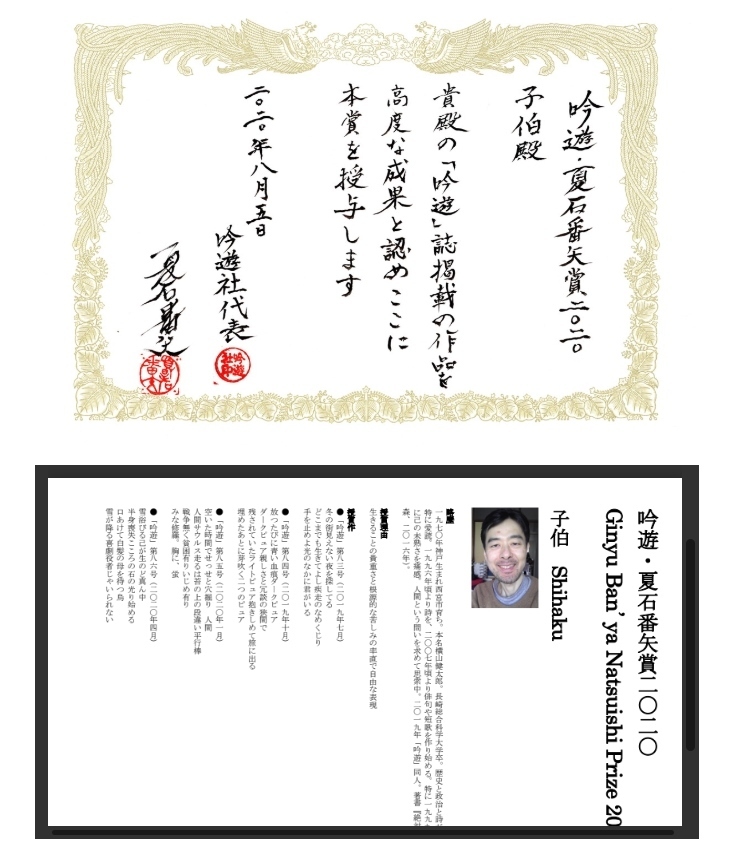 吟遊・夏石番矢賞二〇二〇
子伯殿
貴殿の「吟遊」誌掲載の作品を
高度な成果と認めここに
本賞を授与します
二〇二〇年八月五日
吟遊社代表
夏石番矢
吟遊・夏石番矢賞二〇二〇
Ginyu Ban'ya Natsuishi Prize 20
子伯 Shihaku
略歴
一九七〇年神戸生まれ西宮市育ち。本名横山健太郎。長崎総合科学大学卒。歴史と政治と詩
特に愛読。一九九六年頃より詩を、二〇〇七年頃より俳句や短歌を作り始める。特に一九九
に己の未熟さを痛感。人間という問いを求めて思索中。二〇一九年「吟遊」同人。著書『絶
森、二〇一六年）。
授賞理由
生きることの貴重さと根源的な苦しみの率直で自由な表現
授賞作
●「吟遊」第八三号（二〇一九年七月）
冬の街見えない夜を探してる
どこまでも生きてよし疾走のなめくじり
手を止めよ光のなかに君がいる
●「吟遊」第八四号（二〇一九年十月）
放つたびに青い血痕ダークピュア
ダークピュア親しさと冗談の狭間で
残されていたライトピュア抱きしめて旅に出る
埋めたあとに芽吹く二つのピュア
●「吟遊」第八五号（二〇二〇年一月）
空いた時間でせっせと穴掘り 人間
人間サウルス走るは苔の上の段違い平行棒
戦争無く貧困有りいじめ有り
みな修羅、胸に、蛍
●「吟遊」第八六号（二〇二〇年四月）
雪浴びる己が生のど真ん中
半身喪失こころの石の光り始める
口あけて白髪の母を待つ鳥
雪が降る喜劇役者じゃいられない